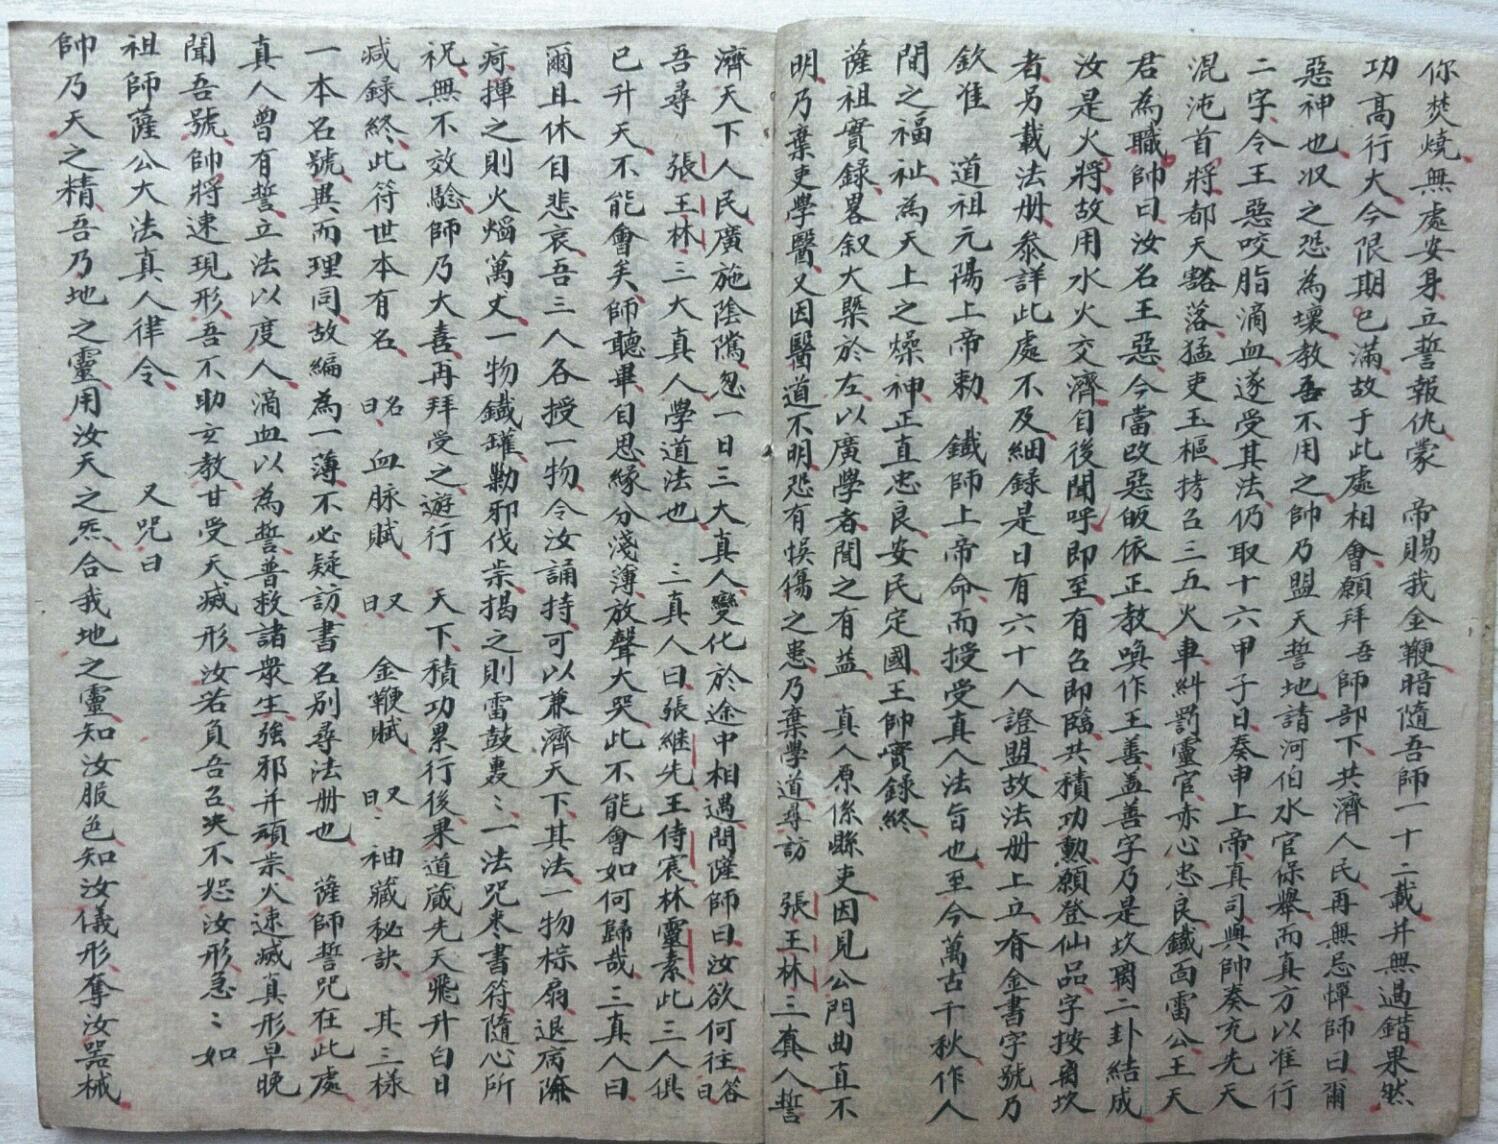 你焚燒無處安身立誓報仇蒙 帝賜我金鞭暗隨吾師一十二載并無過錯果然
功高行大今限期已滿故于此處相會願拜吾師部下共濟人民再無忌憚師曰爾
惡神也収之恐為壞教吾不用之帥乃盟天誓地請河伯水官保舉而真方以准行
二字令王惡咬脂滴血遂受其法仍取十六甲子日奏申上帝真司與帥奏充先天
混沌首將都天豁落猛吏玉樞拷召三五火車糾罰靈官赤心忠良鐵面雷公王天
君為職帥曰汝名王惡今當改惡皈依正教喚作王善盖善字乃是坎离二卦結成
汝是火將故用水火交濟自後聞呼即至有召即臨共積功勲願登仙品字按离坎
者另載法册叅詳此處不及細録是日有六十人證盟故法册上立有金書字號乃
欽准 道祖元陽上帝勅 鐵師上帝命而授受真人法旨也至今萬古千秋作人
間之福祉為天上之燥神正直忠良安民定國王帥實録終
薩祖實録畧叙大槩於左以廣學者聞之有益 真人原係縣吏因見公門曲直不
明乃棄吏學醫又因醫道不明恐有悞傷之患乃棄學道尋訪 張王林三真人誓
濟天下人民廣施陰隲忽一日三大真人變化於途中相遇問薩師曰汝欲何往答曰
吾尋 張王林三大真人學道法也 三真人曰張継先王侍宸林靈素此三人俱
已升天不能會矣師聽畢自思緣分淺薄放聲大哭此不能會如何歸哉三真人曰
爾且休自悲哀吾三人各授一物令汝誦持可以兼濟天下其法一物棕扇退病除
疴揮之則火熖萬丈一物鐵罐勦邪伐祟揭之則雷鼓轟〻一法咒枣書符隨心所
祝無不效驗師乃大喜再拜受之遊行 天下積功累行後果道蔵先天飛升白日
减録終此符世本有名 名曰血脉賦 又曰 金鞭賦 又曰 袖藏秘訣 其三樣
一本名號異而理同故編為一薄不必疑訪書名别尋法册也 薩師誓咒在此處
真人曾有誓立法以度人滴血以為誓普救諸衆生強邪并頑祟火速滅真形早晚
聞吾號帥將速現形吾不助玄教甘受天滅形汝若負吾召决不恕汝形急〻如
祖師薩公大法真人律令 又咒曰
帥乃天之精吾乃地之靈用汝天之炁合我地之靈知汝服色知汝儀形奪汝器械